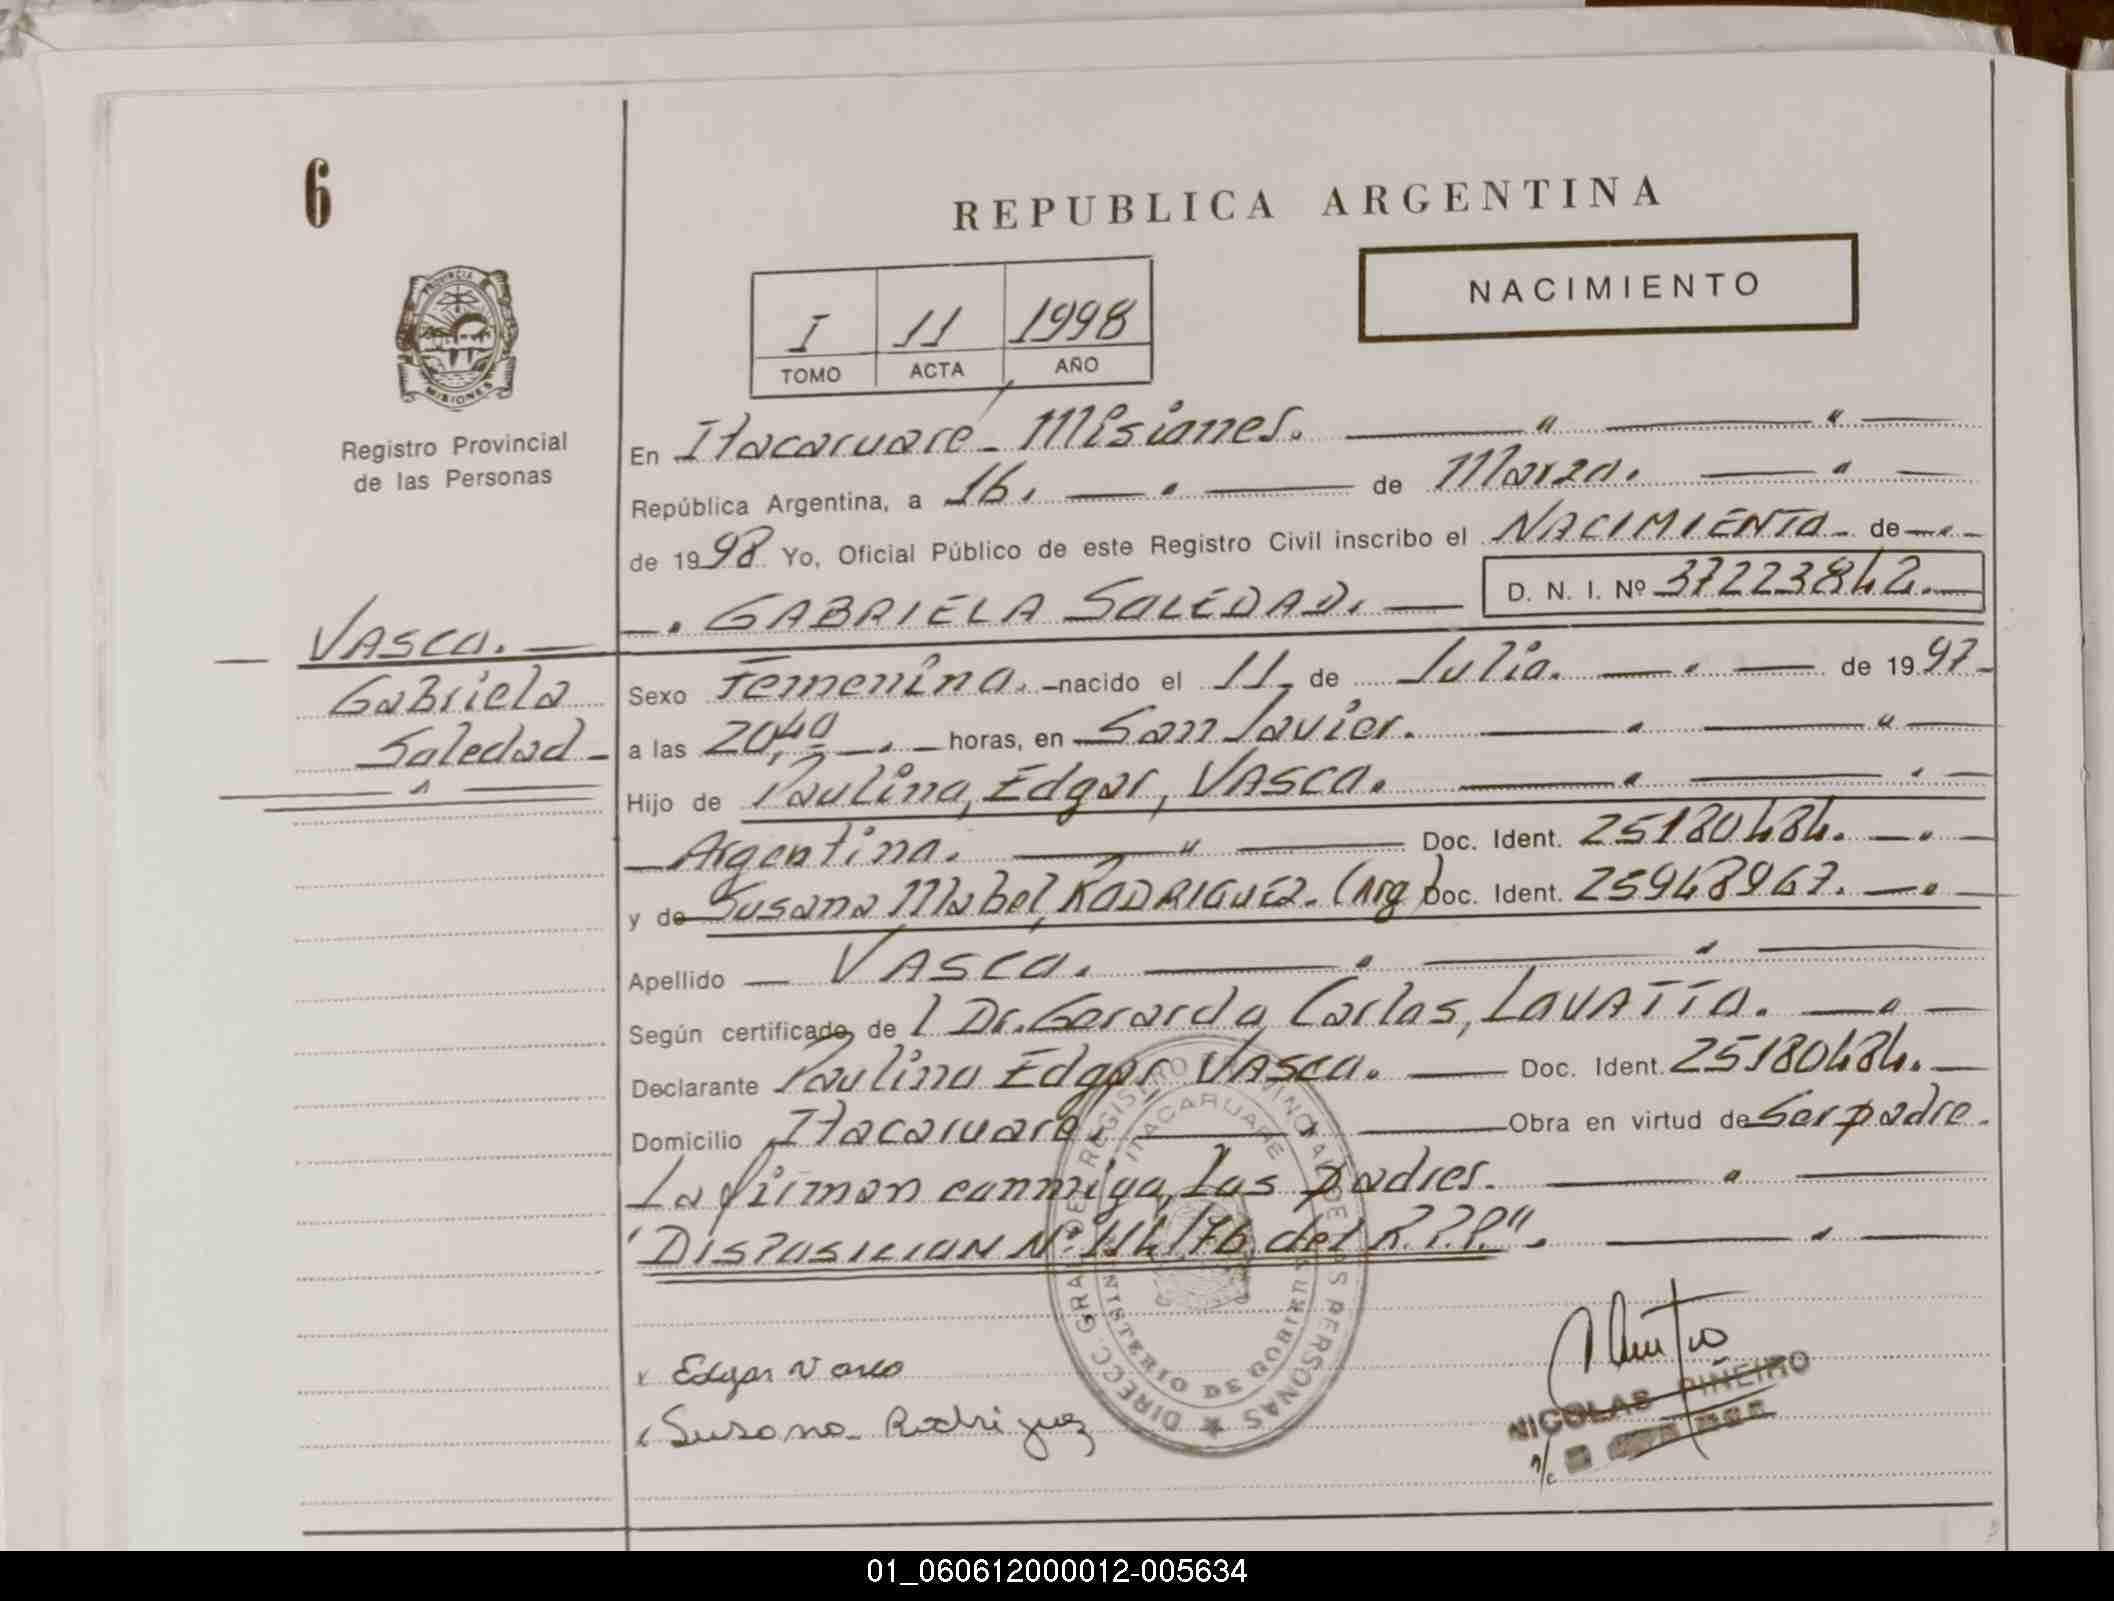 6
REPUBLICA ARGENTINA
NACIMIENTO
I 11 1998
TOMO ACTA AÑO
PROVINCIA
MISIONES
Registro Provincial
de las Personas
En Itacaruaré - Misiones. — " — " —
República Argentina, a 16. — " — de Marzo. — " —
de 1998 Yo, Oficial Público de este Registro Civil inscribo el NACIMIENTO - de — . —
— . GABRIELA SOLEDAD. — D. N. I. Nº 37223842. —
— VASCO. —
Gabriela
Soledad —
Sexo Femenino. — nacido el 11 de Julio. — " — de 1997 -
a las 20,40 — . — horas, en San Javier. — " — " —
Hijo de Paulino, Edgar, VASCO. — " — " —
— Argentino. — " — Doc. Ident. 25180484. — " —
y de Susana Mabel, RODRIGUEZ. (Arg) Doc. Ident. 25948967. — " —
Apellido — VASCO. — " — " —
Según certificado de l Dr. Gerardo Carlos, LOVATTO. — " —
Declarante Paulino Edgar VASCO. — Doc. Ident. 25180484. —
Domicilio Itacaruaré. — " — Obra en virtud de Ser padre.
La firman conmigo, los padres. — " —
"DISPOSICION Nº 114/76 del R.P.P.". — " —
DIRECC. GRAL. DE REGISTRO PROVINCIAL DE LAS PERSONAS
ITACARUARE
MINISTERIO DE GOBIERNO
Edgar Vasco
Susana Rodriguez
NICOLAS PIÑEIRO
01_060612000012-005634